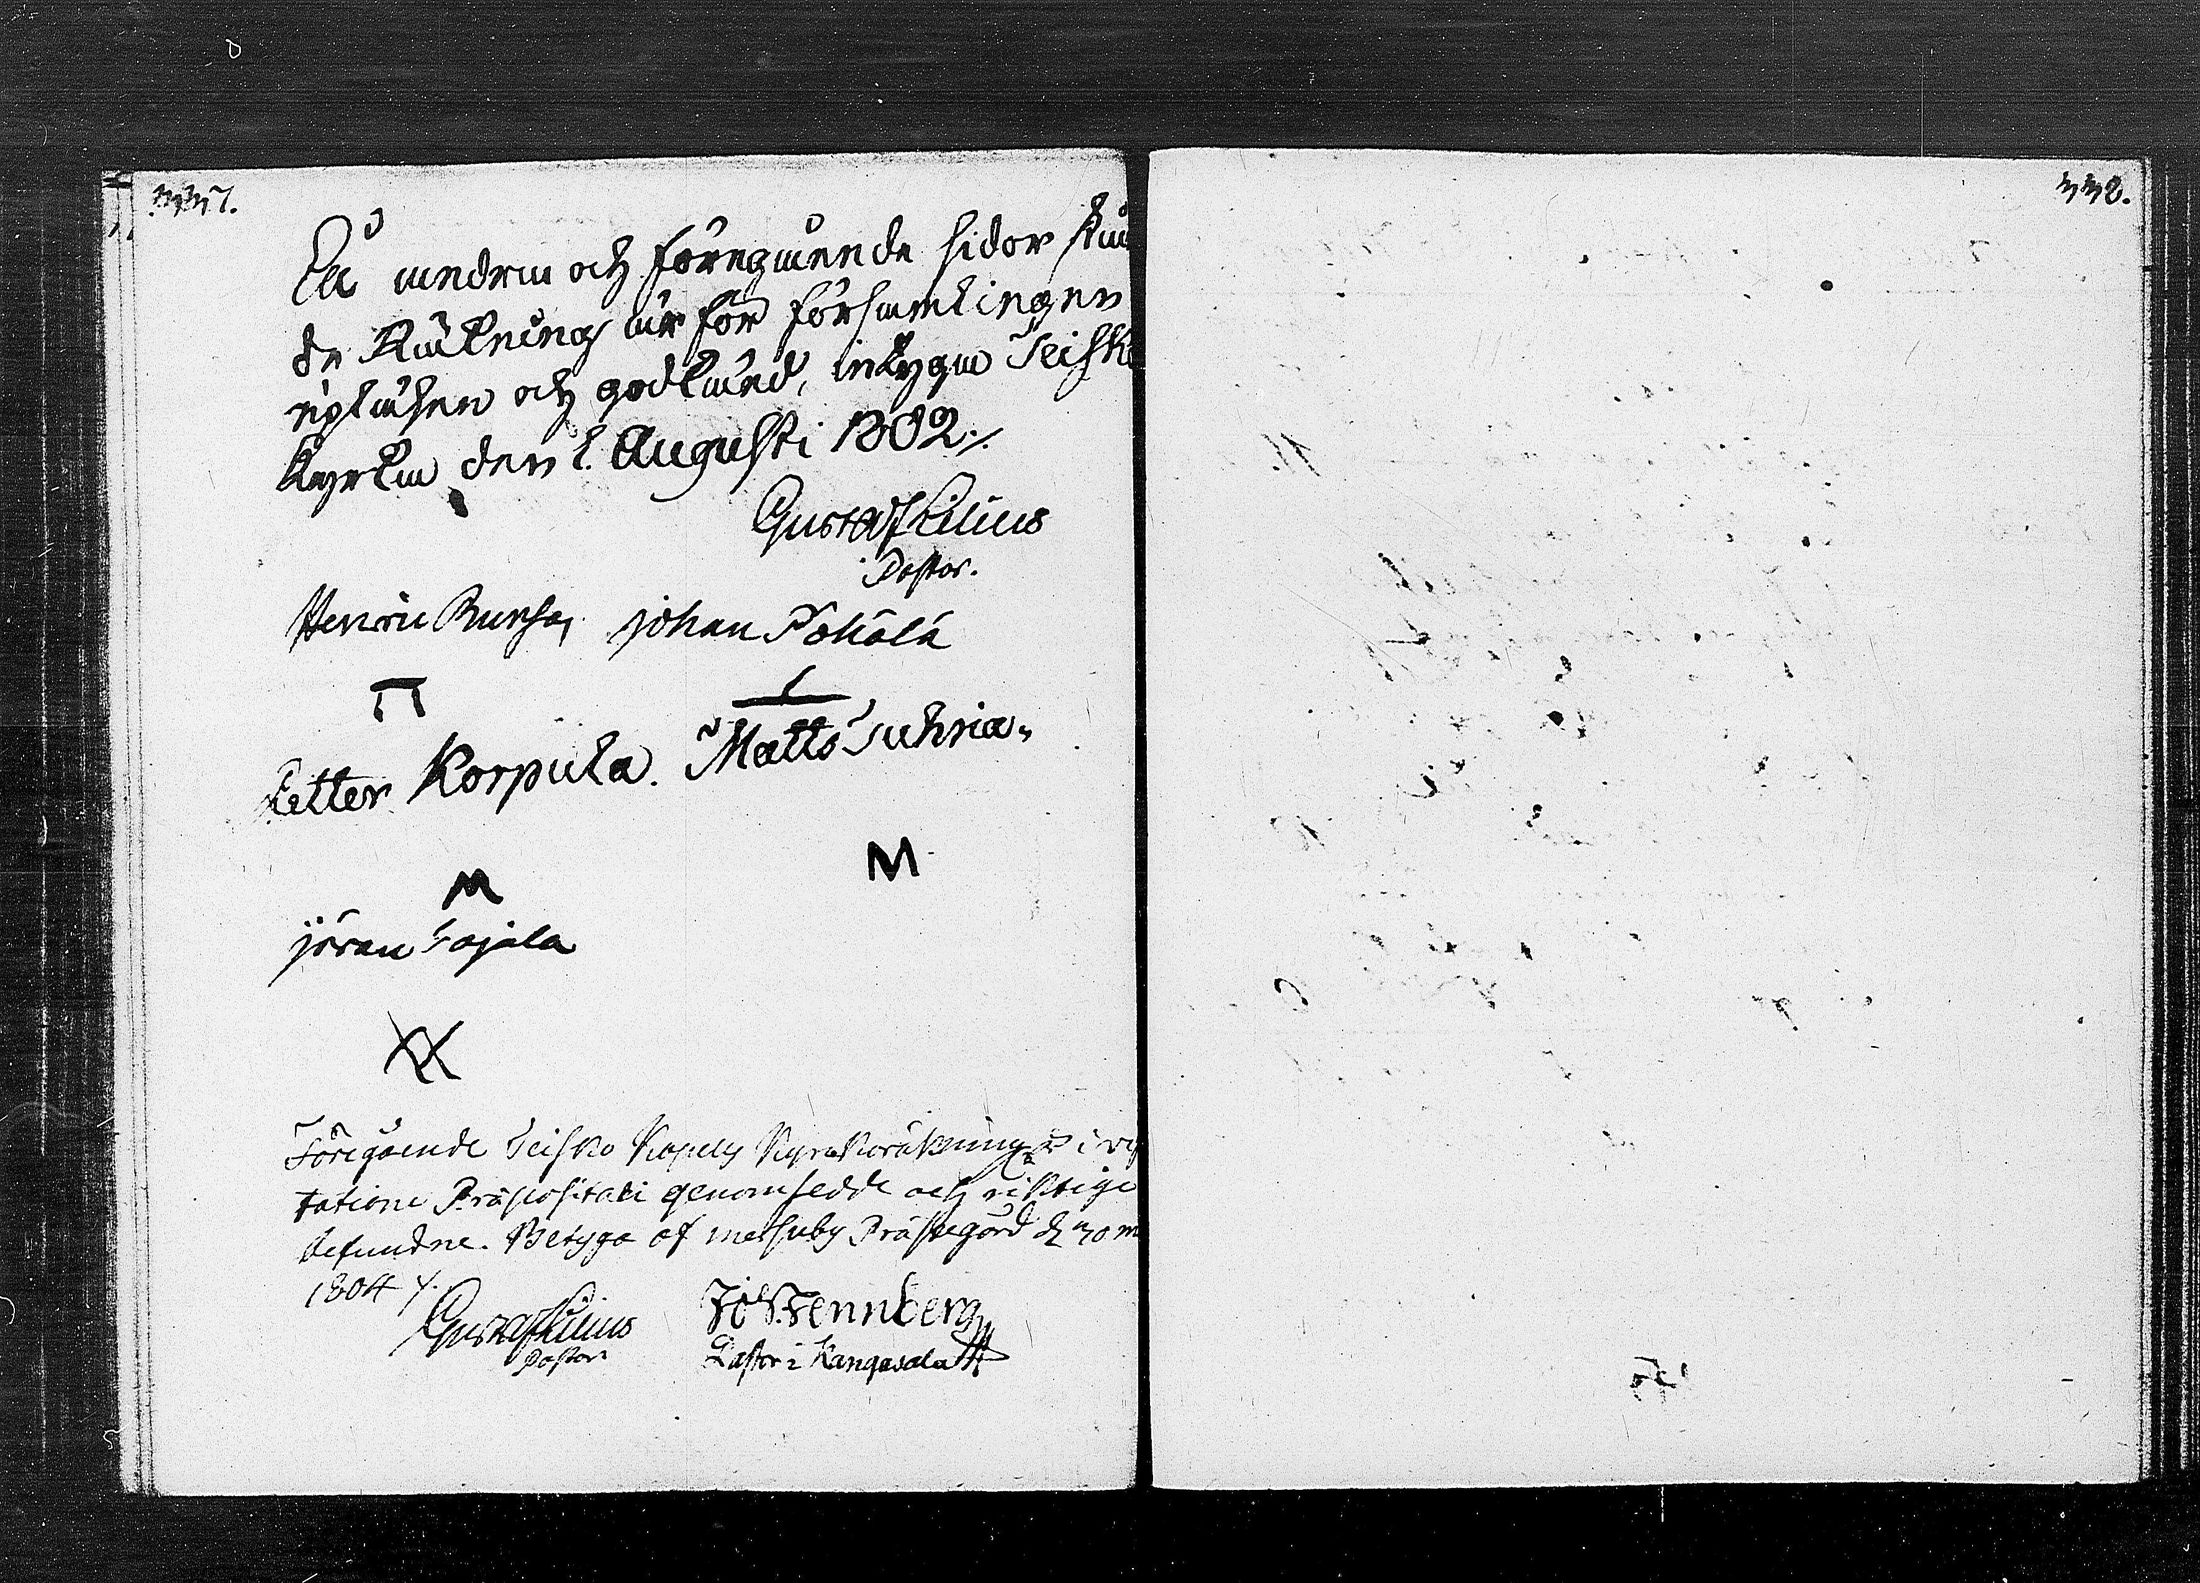 337.
På andra och föregående sidor stå
de Räkning är för församlingen
upläsen och godkänd, intyga Teisko
Kyrka den 1. Augusti 1802./.
Gustaf Lilius
Pastor.
Henric Johan Pohiola
Petter Korpula. Matts
M M
jöran
Föregående Teisko Capels Kyrkoräkningar i vi
tatione Präpositali genomsedde och riktige
befundne. Betyga af Messuby Prästegård d 30 m
1804 ./.
Gustaf Lilius
Pastor
Joh Fennberg
Pastor i Kangasala
338.